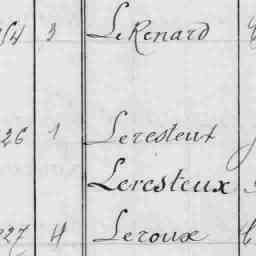 3 LeRenard
26 1 Leresteux
Leresteux
227 4 Leroux